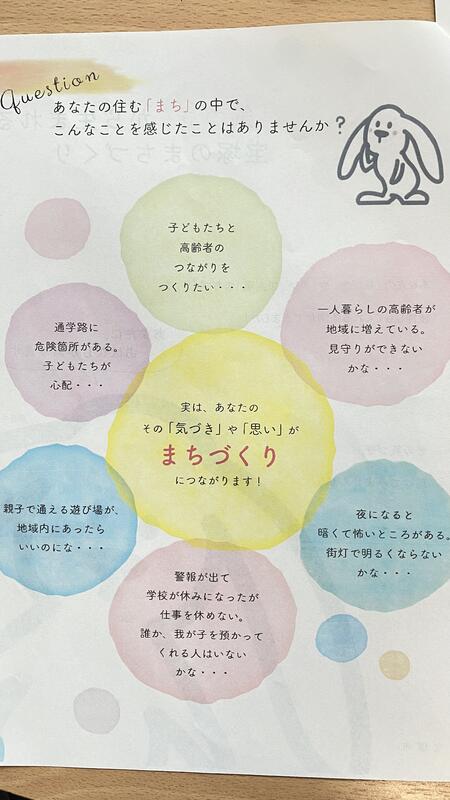 Question
あなたの住む「まち」の中で、
こんなことを感じたことはありませんか？
子どもたちと
高齢者の
つながりを
つくりたい・・・
一人暮らしの高齢者が
地域に増えている。
見守りができない
かな・・・
通学路に
危険箇所がある。
子どもたちが
心配・・・
実は、あなたの
その「気づき」や「思い」が
まちづくり
につながります！
親子で通える遊び場が、
地域内にあったら
いいのにな・・・
夜になると
暗くて怖いところがある。
街灯で明るくならない
かな・・・
警報が出て
学校が休みになったが
仕事を休めない。
誰か、我が子を預かって
くれる人はいない
かな・・・